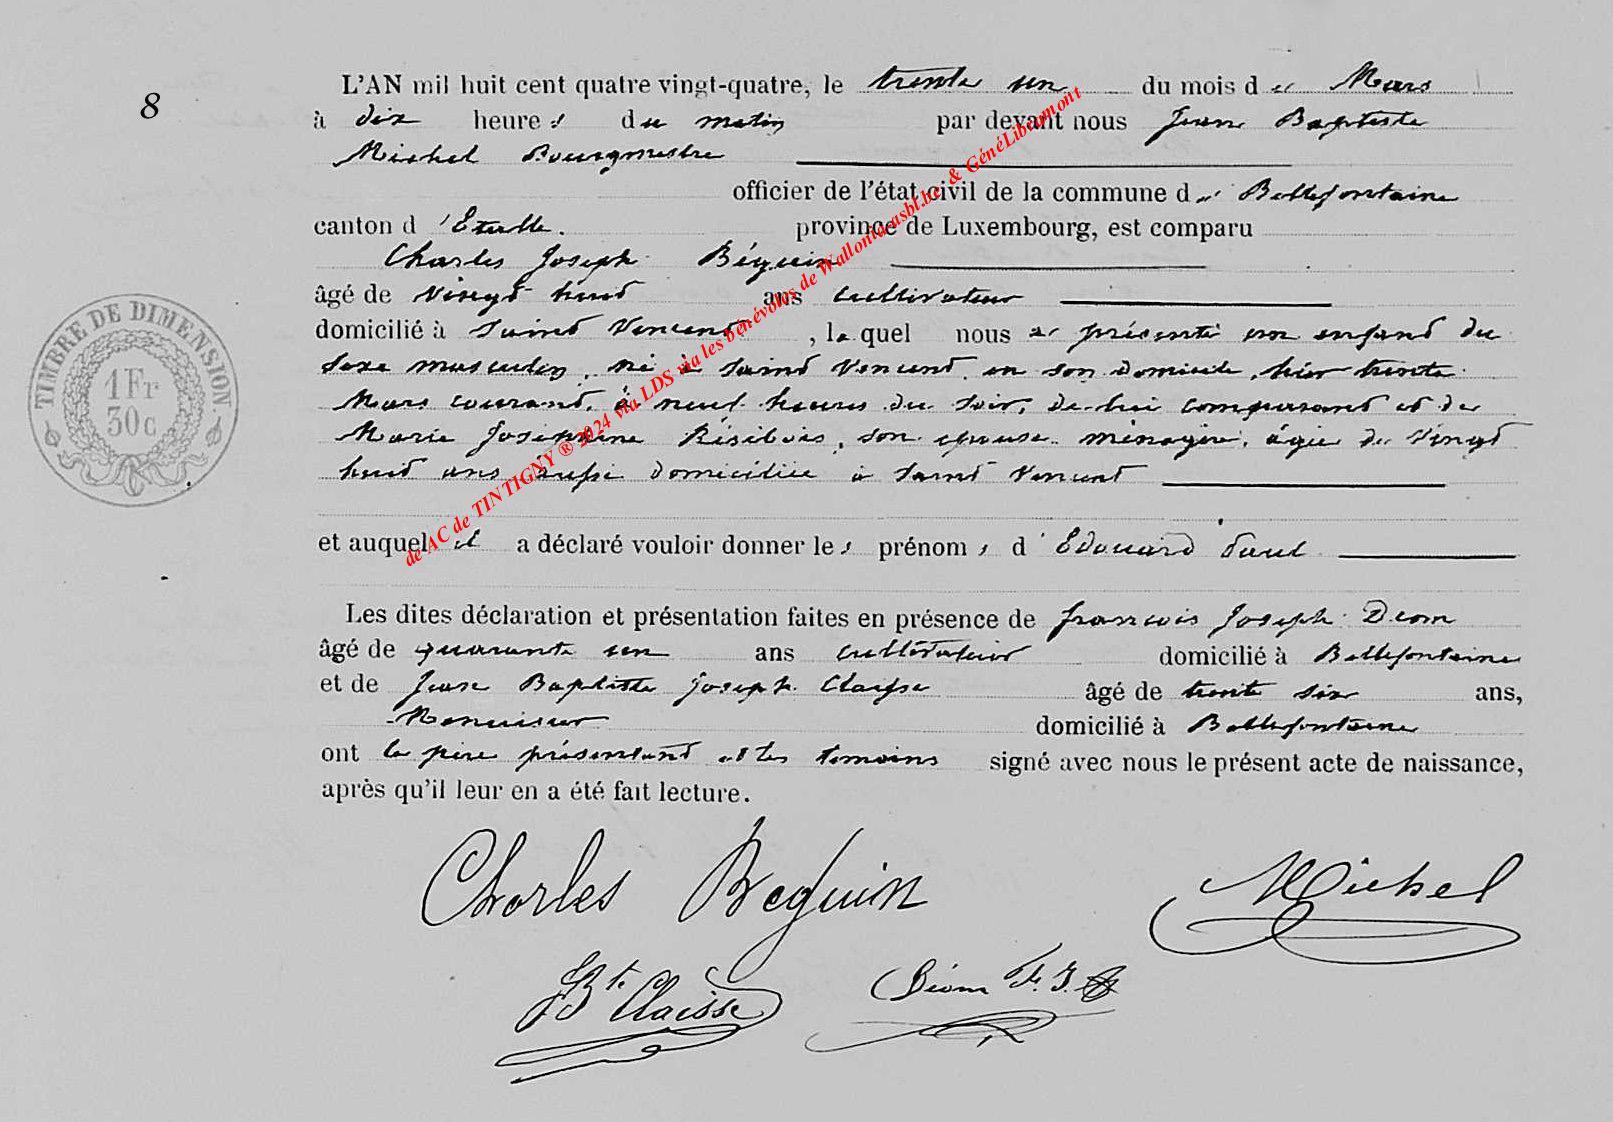 8
L'AN mil huit cent quatre vingt-quatre, le trente un du mois de Mars
à dix heures du matin par devant nous Jean Baptiste
Michel Bourgmestre
officier de l'état civil de la commune de Bellefontaine
canton d'Etalle. province de Luxembourg, est comparu
Charles Joseph Béguin
âgé de vingt huit ans cultivateur
domicilié à Saint Vincent, lequel nous a présenté un enfant du
sexe masculin, né à Saint Vincent, en son domicile, hier trente
Mars courant, à neuf heures du soir, de lui comparant et de
Marie Joséphine Résibois, son épouse ménagère, âgée de vingt
huit ans aussi domiciliée à Saint Vincent
et auquel il a déclaré vouloir donner les prénoms d'Edouard Paul
Les dites déclaration et présentation faites en présence de françois Joseph Déom
âgé de quarante un ans cultivateur domicilié à Bellefontaine
et de Jean Baptiste Joseph Claisse âgé de trente six ans,
Menuisier domicilié à Bellefontaine
ont le père présentant et les témoins signé avec nous le présent acte de naissance,
après qu'il leur en a été fait lecture.
Charles Beguin Michel
JBte Claisse Déom F. J.
TIMBRE DE DIMENSION
1 Fr
30c
de AC de TINTIGNY ® 2024 via LDS via les bénévoles de Wallonia asbl.be & GénéLibramont